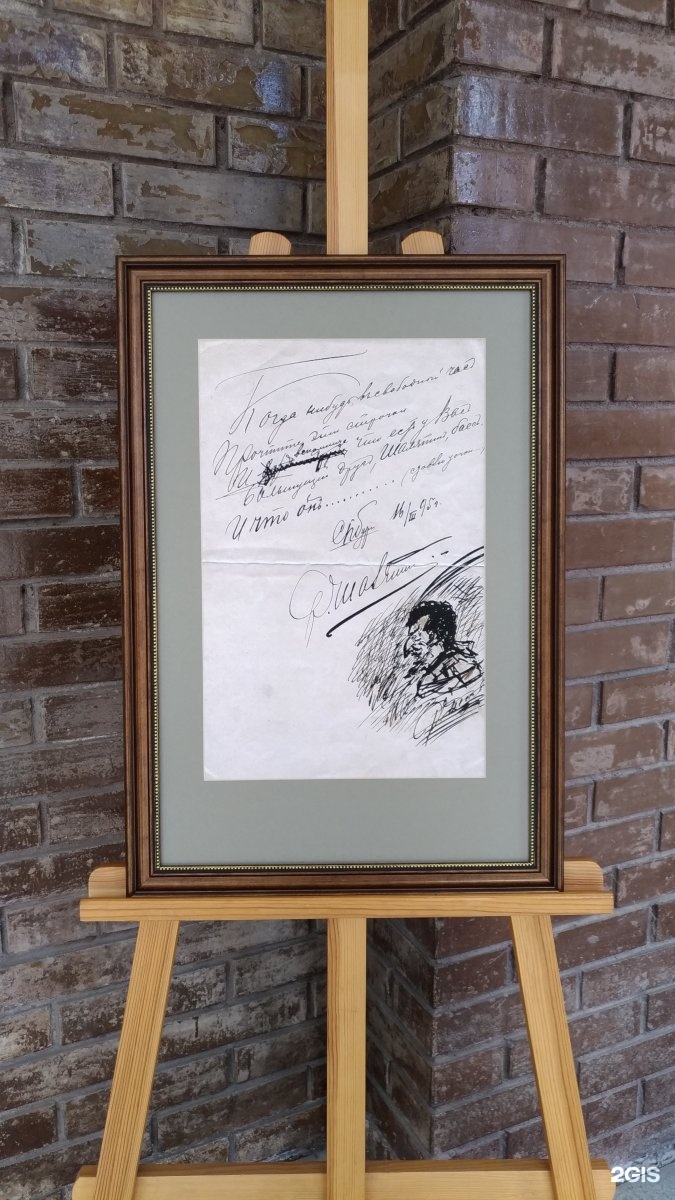 Когда нибудь в свободный час
Прочтите эти строчки
И вспомнишь что есть у Вас
большущий друг, Шаляпин, бас.
И что онъ........... (сдѣлал точки)
СПбургъ 16/III 95 г.
ФШаляпин
2GIS